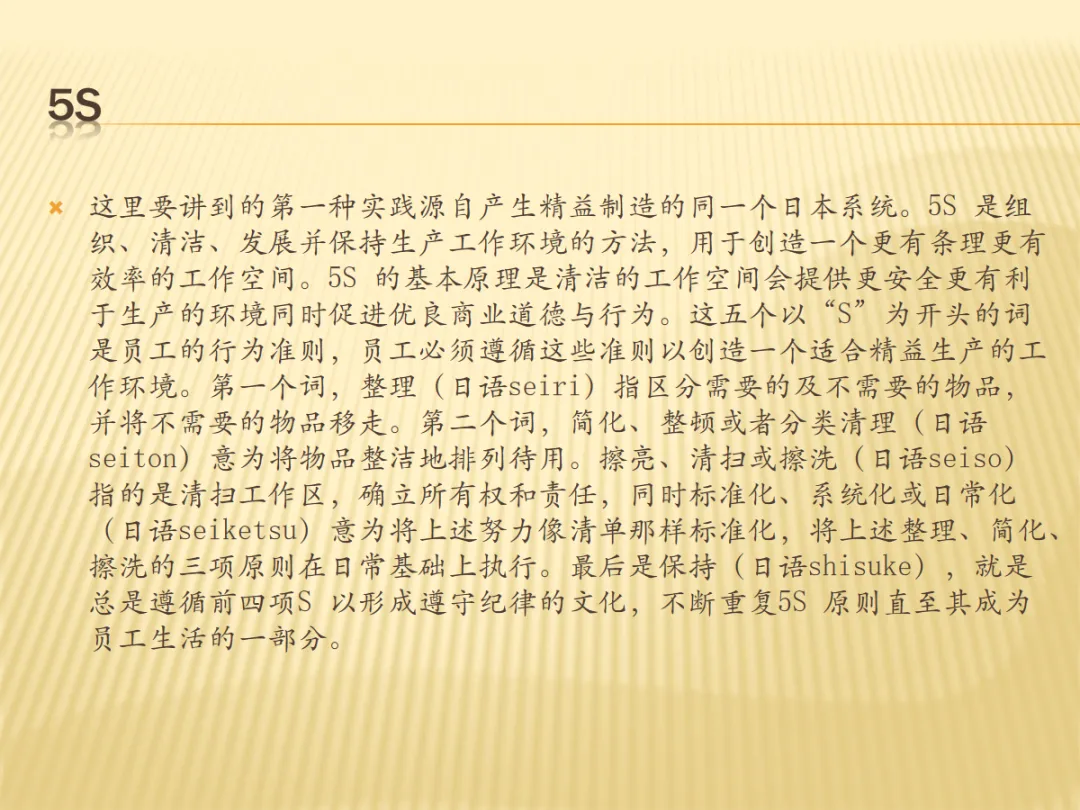 5S
这里要讲到的第一种实践源自产生精益制造的同一个日本系统。5S 是组
织、清洁、发展并保持生产工作环境的方法，用于创造一个更有条理更有
效率的工作空间。5S 的基本原理是清洁的工作空间会提供更安全更有利
于生产的环境同时促进优良商业道德与行为。这五个以“S”为开头的词
是员工的行为准则，员工必须遵循这些准则以创造一个适合精益生产的工
作环境。第一个词，整理（日语seiri）指区分需要的及不需要的物品，
并将不需要的物品移走。第二个词，简化、整顿或者分类清理（日语
seiton）意为将物品整洁地排列待用。擦亮、清扫或擦洗（日语seiso）
指的是清扫工作区，确立所有权和责任，同时标准化、系统化或日常化
（日语seiketsu）意为将上述努力像清单那样标准化，将上述整理、简化、
擦洗的三项原则在日常基础上执行。最后是保持（日语shisuke），就是
总是遵循前四项S 以形成遵守纪律的文化，不断重复5S 原则直至其成为
员工生活的一部分。